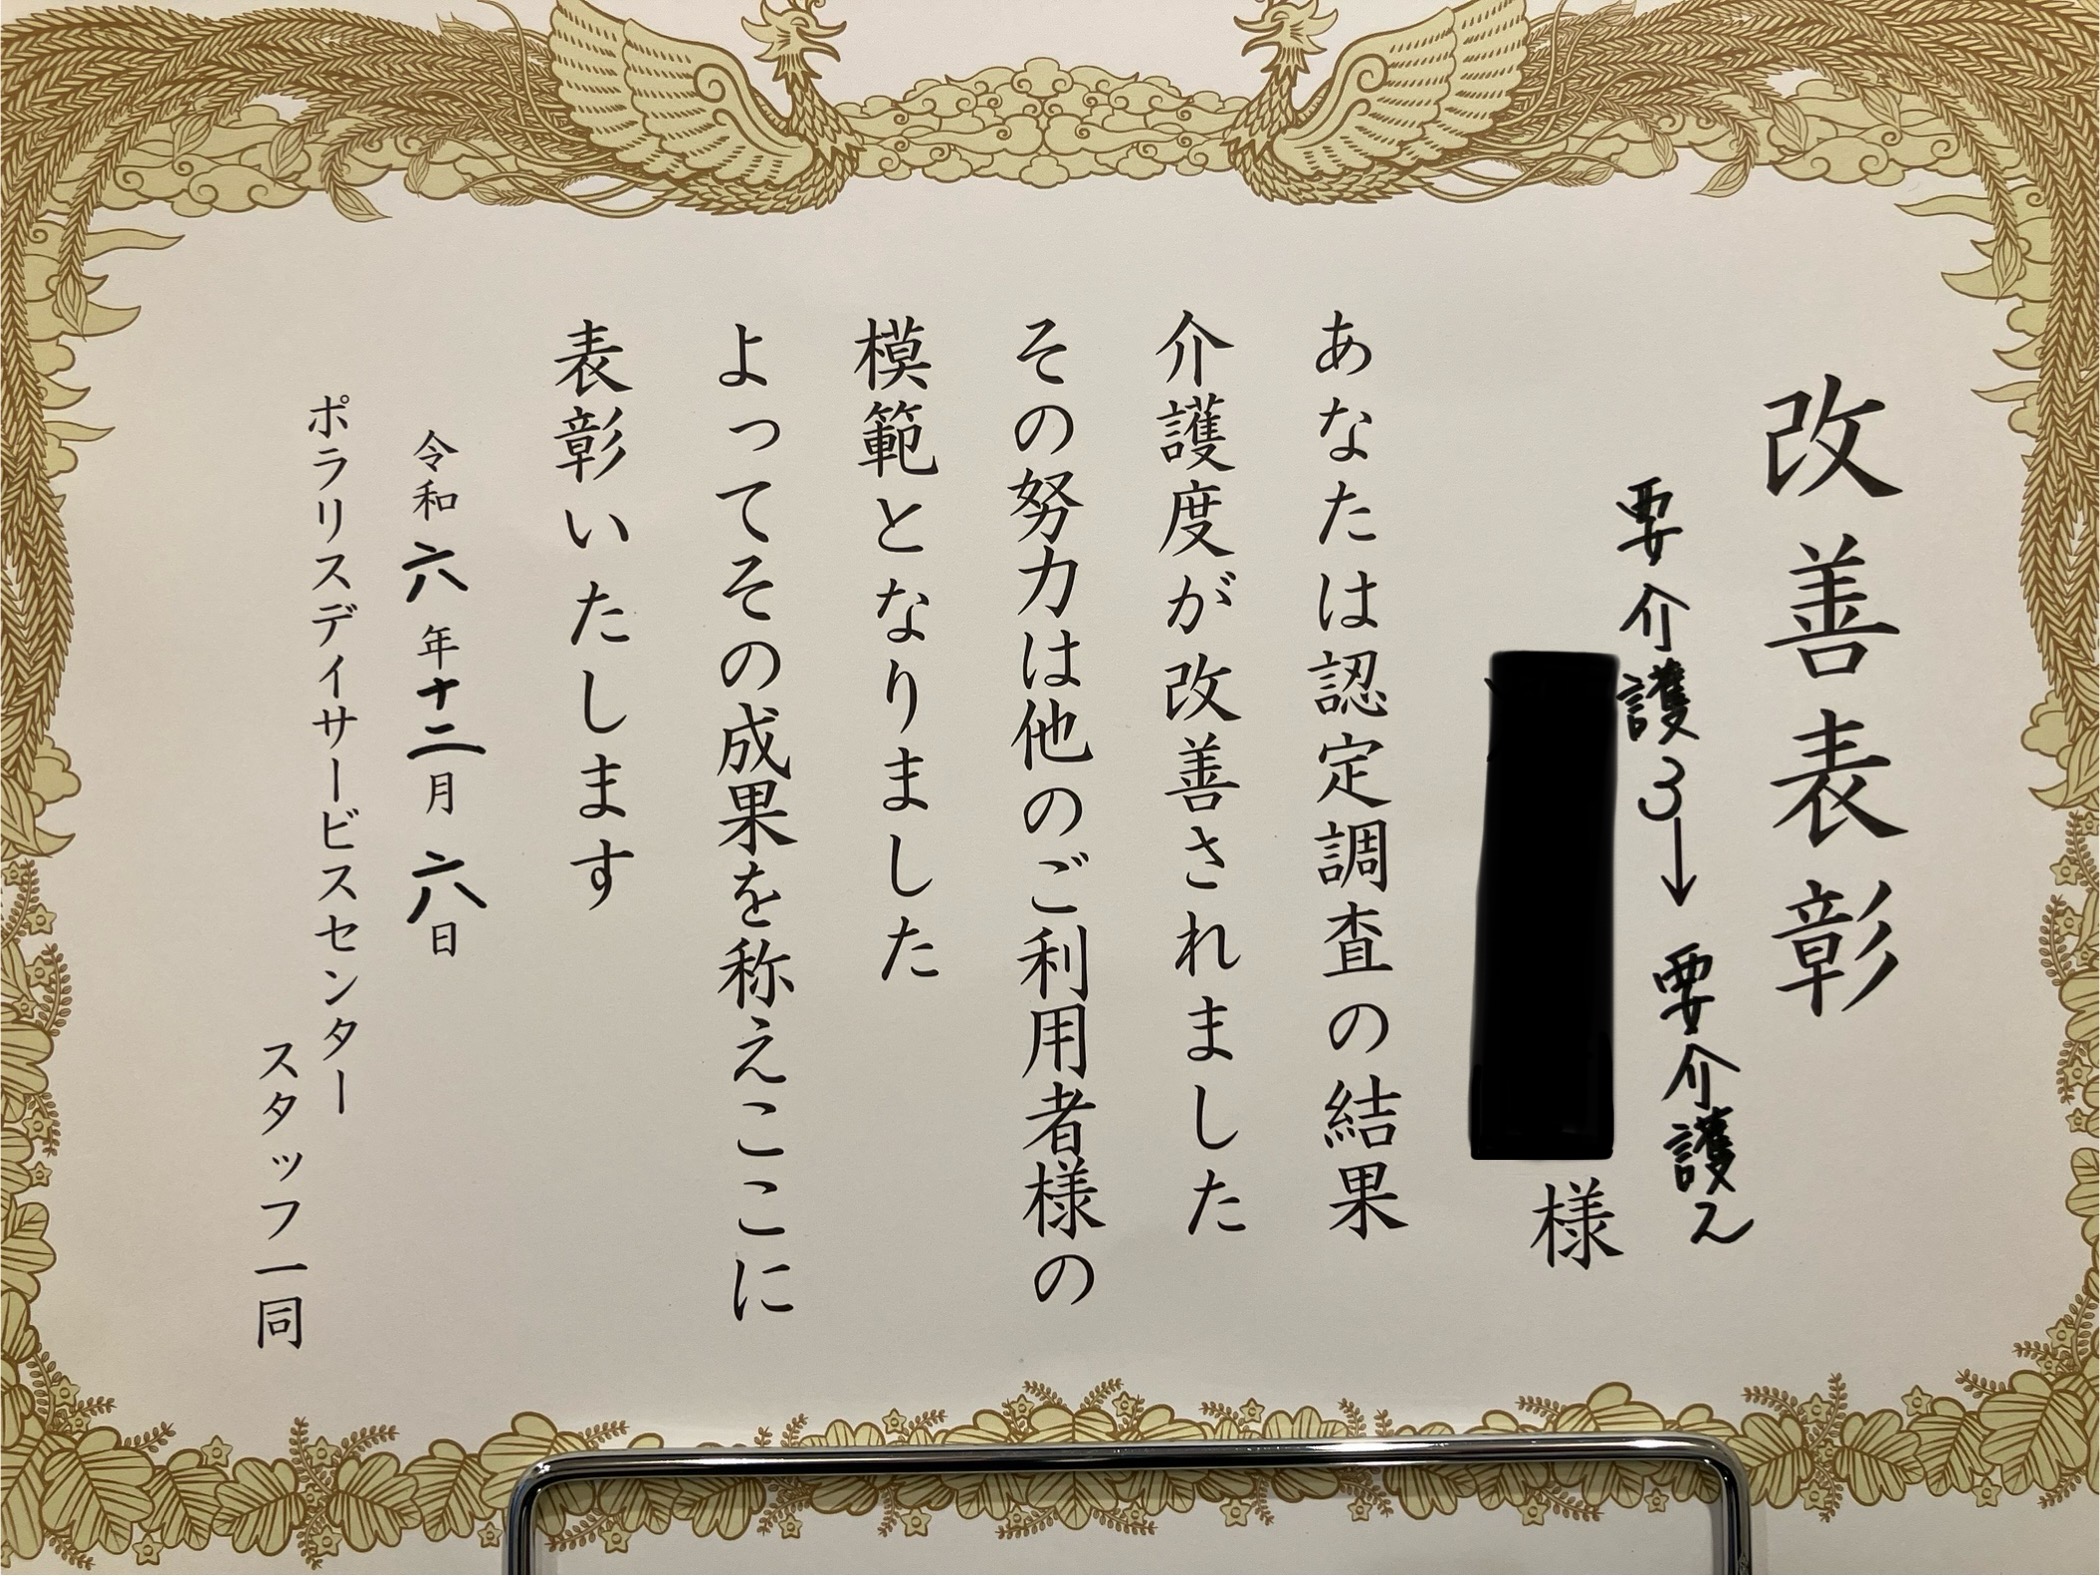 改善表彰
要介護3→要介護2
様
あなたは認定調査の結果
介護度が改善されました
その努力は他のご利用者様の
模範となりました
よってその成果を称えここに
表彰いたします
令和六年十二月六日
ポラリスデイサービスセンター
スタッフ一同